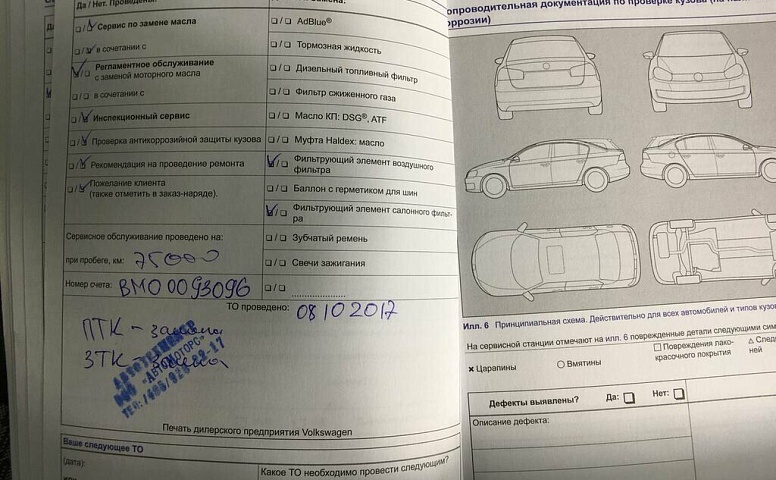 Да / Нет. Проведены
☐/☑ Сервис по замене масла
☐/☑ в сочетании с
☑/☐ Регламентное обслуживание
с заменой моторного масла
☐/☐ в сочетании с
☐/☑ Инспекционный сервис
☐/☑ Проверка антикоррозийной защиты кузова
☐/☑ Рекомендация на проведение ремонта
☐/☑ Пожелание клиента
(также отметить в заказ-наряде).
Сервисное обслуживание проведено на:
при пробеге, км: 75000
Номер счета: ВМО0093096
☐/☐ AdBlue®
☐/☐ Тормозная жидкость
☐/☐ Дизельный топливный фильтр
☐/☐ Фильтр сжиженного газа
☐/☐ Масло КП: DSG®, ATF
☐/☐ Муфта Haldex: масло
☑/☐ Фильтрующий элемент воздушного
фильтра
☐/☐ Баллон с герметиком для шин
☑/☐ Фильтрующий элемент салонного фильт-
ра
☐/☐ Зубчатый ремень
☐/☐ Свечи зажигания
☐/☐
ТО проведено: 08 10 2017
ПТК - замена
ЗТК - замена
АВТОТЕХЦЕНТР
ООО "АВТОМОТОРС"
Печать дилерского предприятия Volkswagen
Ваше следующее ТО
(дата):
Какое ТО необходимо провести следующим?
опроводительная документация по проверке кузова
оррозии)
Илл. 6 Принципиальная схема. Действительно для всех автомобилей и типов кузо
На сервисной станции отмечают на илл. 6 поврежденные детали следующими сим
✖ Царапины
○ Вмятины
☐ Повреждения лако-
красочного покрытия
△ След
ней
Дефекты выявлены? Да: ☐ Нет: ☐
Описание дефекта: